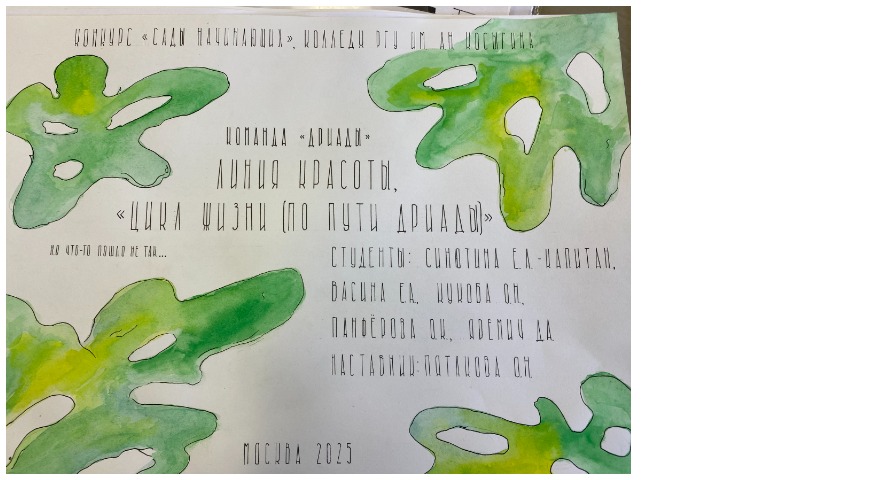 КОНКУРС «САДЫ НАЧИНАЮЩИХ», КОЛЛЕДЖ РГУ ИМ. А.Н. КОСЫГИНА
КОМАНДА «ДРИАДЫ»
ЛИНИЯ КРАСОТЫ,
«ЦИКЛ ЖИЗНИ (ПО ПУТИ ДРИАДЫ)»
НО ЧТО-ТО ПОШЛО НЕ ТАК...
СТУДЕНТЫ: СИНЮТИНА Е.А.-КАПИТАН,
ВАСИНА Е.А., 
ПАНФЁРОВА
НАСТАВНИК:
МОСКВА 2025